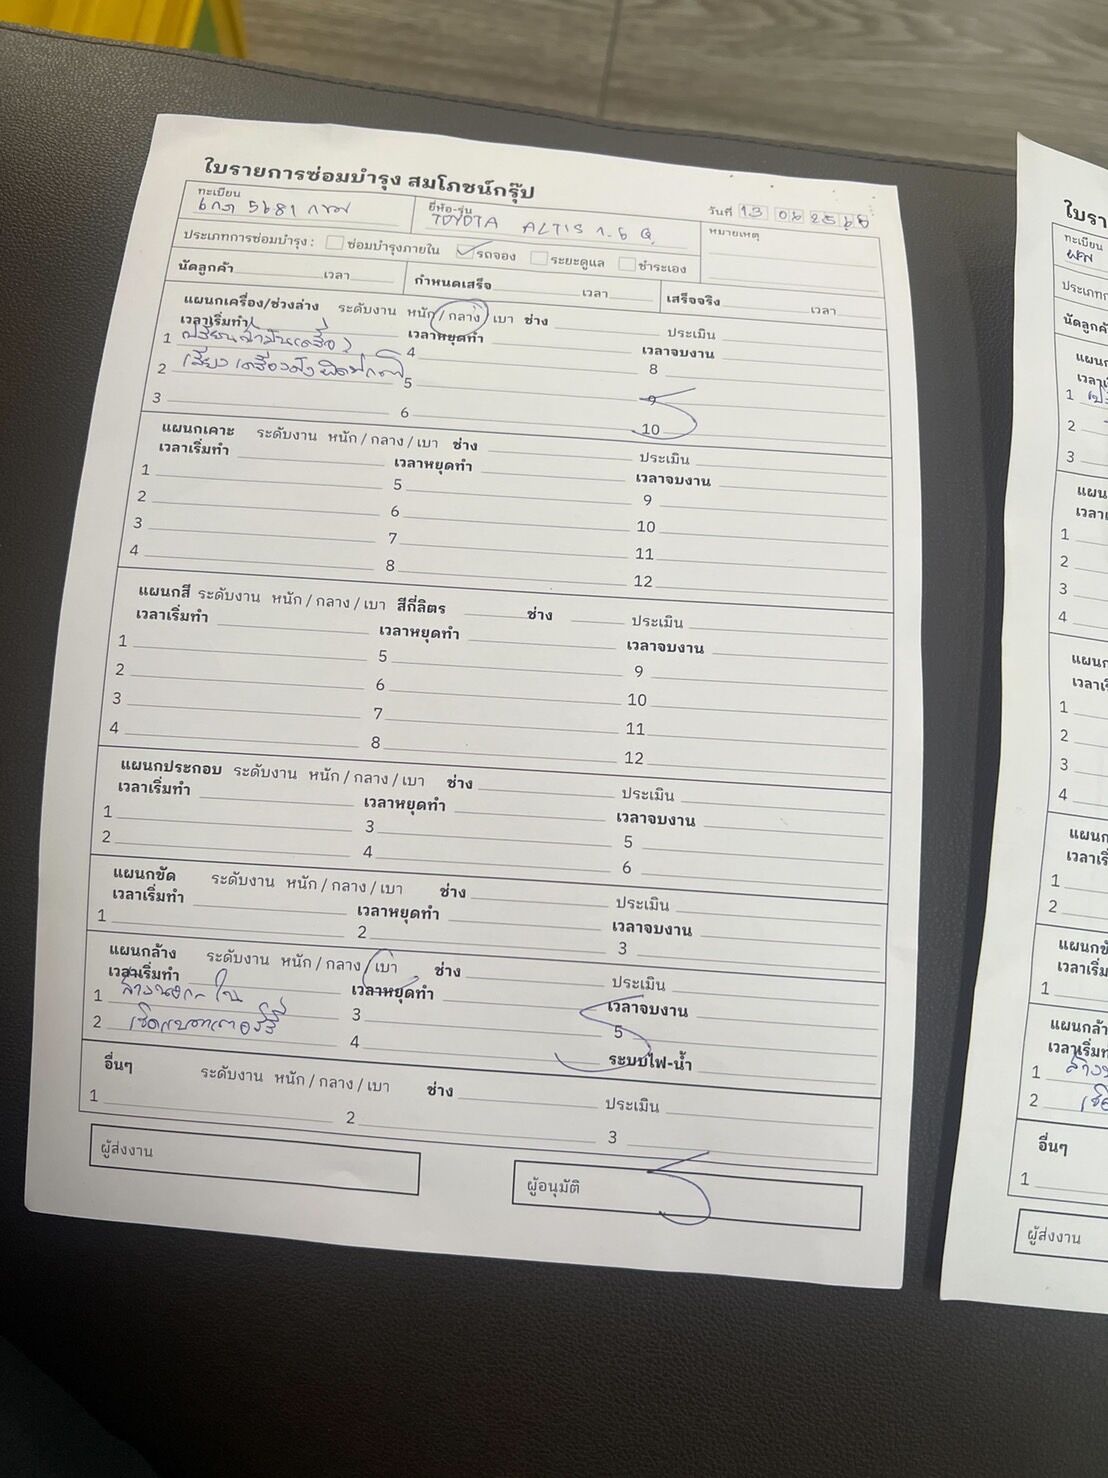 ใบรายการซ่อมบำรุง สมโภชน์กรุ๊ป
ทะเบียน
6กก 5681 กทม
ยี่ห้อ-รุ่น
TOYOTA ALTIS 1.6 Q
วันที่ 13 06 2568
หมายเหตุ
ประเภทการซ่อมบำรุง : ซ่อมบำรุงภายใน รถจอง ระยะดูแล ชำระเอง
นัดลูกค้า เวลา กำหนดเสร็จ เวลา เสร็จจริง เวลา
แผนกเครื่อง/ช่วงล่าง ระดับงาน หนัก / กลาง / เบา ช่าง ประเมิน
เวลาเริ่มทำ เวลาหยุดทำ เวลาจบงาน
1 เปลี่ยนน้ำมันเครื่อง 4 8
2 เสียงเครื่องดังผิดปกติ 5 9
3 6 10
แผนกเคาะ ระดับงาน หนัก / กลาง / เบา ช่าง ประเมิน
เวลาเริ่มทำ เวลาหยุดทำ เวลาจบงาน
1 5 9
2 6 10
3 7 11
4 8 12
แผนกสี ระดับงาน หนัก / กลาง / เบา สีกี่ลิตร ช่าง ประเมิน
เวลาเริ่มทำ เวลาหยุดทำ เวลาจบงาน
1 5 9
2 6 10
3 7 11
4 8 12
แผนกประกอบ ระดับงาน หนัก / กลาง / เบา ช่าง ประเมิน
เวลาเริ่มทำ เวลาหยุดทำ เวลาจบงาน
1 3 5
2 4 6
แผนกขัด ระดับงาน หนัก / กลาง / เบา ช่าง ประเมิน
เวลาเริ่มทำ เวลาหยุดทำ เวลาจบงาน
1 2 3
แผนกล้าง ระดับงาน หนัก / กลาง / เบา ช่าง ประเมิน
เวลาเริ่มทำ เวลาหยุดทำ เวลาจบงาน
1 ล้างนอก-ใน 3 5
2 เช็คแบตเตอรี่ 4 ระบบไฟ-น้ำ
อื่นๆ ระดับงาน หนัก / กลาง / เบา ช่าง ประเมิน
1 2 3
ผู้ส่งงาน
ผู้อนุมัติ
ใบรา
ทะเบียน
ประเภทก
นัดลูกค้
แผนก
เวลาเ
1
2
3
แผน
เวลา
1
2
3
4
แผนก
เวลาเ
1
2
3
4
แผนก
เวลาเริ่
1
2
แผนกขั
เวลาเริ่ม
1
แผนกล้า
เวลาเริ่มท
1
2
อื่นๆ
1
ผู้ส่งงาน